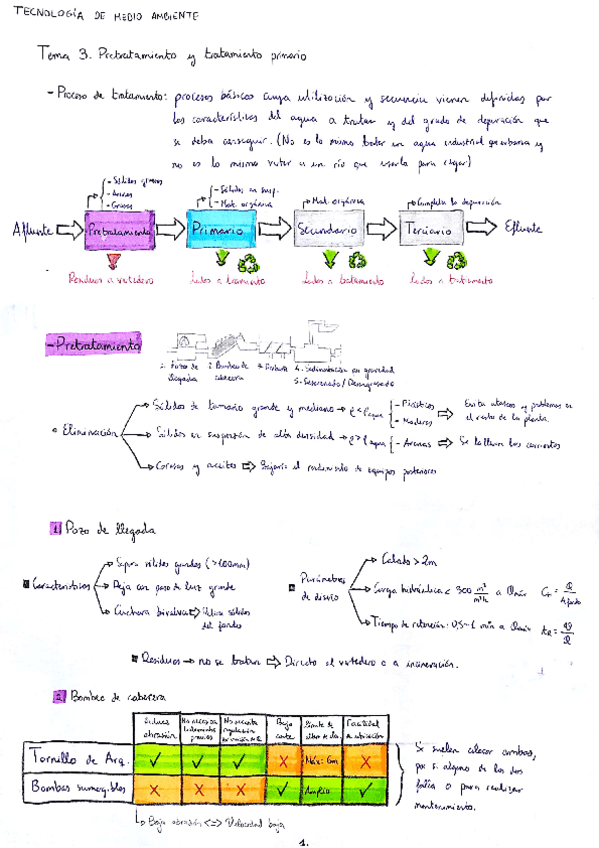 TECNOLOGÍA DE MEDIO AMBIENTE
Tema 3. Pretratamiento y tratamiento primario
- Proceso de tratamiento: procesos básicos cuya utilización y secuencia vienen definidas por
las características del agua a tratar y del grado de depuración que
se deba conseguir. (No es lo mismo tratar un agua industrial que urbana y
no es lo mismo verter a un río que usarla para regar)
- Sólidos gruesos
- Arenas
- Grasas
- Sólidos en susp.
- Mat. orgánica
- Mat. orgánica
- Completa la depuración
Afluente
Pretratamiento
Primario
Secundario
Terciario
Efluente
Residuos a vertedero
Lodos a tratamiento
Lodos a tratamiento
Lodos a tratamiento
- Pretratamiento
1. Pozo de llegada
2. Bombeo de cabecera
4. Sedimentación por gravedad
5. Desarenado / Desengrasado
• Eliminación
Sólidos de tamaño grande y mediano → ρ < ρ agua
- Plásticos
- Maderas
Evita atascos y problemas en el resto de la planta.
Sólidos en suspensión de alta densidad → ρ > ρ agua
- Arenas
Se la llevan las corrientes
Grasas y aceites ⇒ Bajaría el rendimiento de equipos posteriores
1 Pozo de llegada
Características
Separa sólidos grandes (>100mm)
Reja con paso de luz grande
Cuchara bivalva ⇒ Retira sólidos del fondo
Parámetros de diseño
Calado > 2m
Carga hidráulica < 300 m³/m²h a Qmáx
Tiempo de retención: 0,5-1 min a Qmáx
Residuos → no se tratan ⇒ Directo al vertedero o a incineración.
2 Bombeo de cabecera
abrasión
Bajo coste
Límite de altura
Facilidad de ubicación
Tornillo de Arq.
✓ ✓ ✓ X Máx: 6m X
Bombas sumergibles
X X X ✓ Amplio ✓
Se suelen colocar ambas,
por si alguno de los dos
falla o para realizar
mantenimiento.
↳ Baja abrasión <=> Velocidad baja
1.